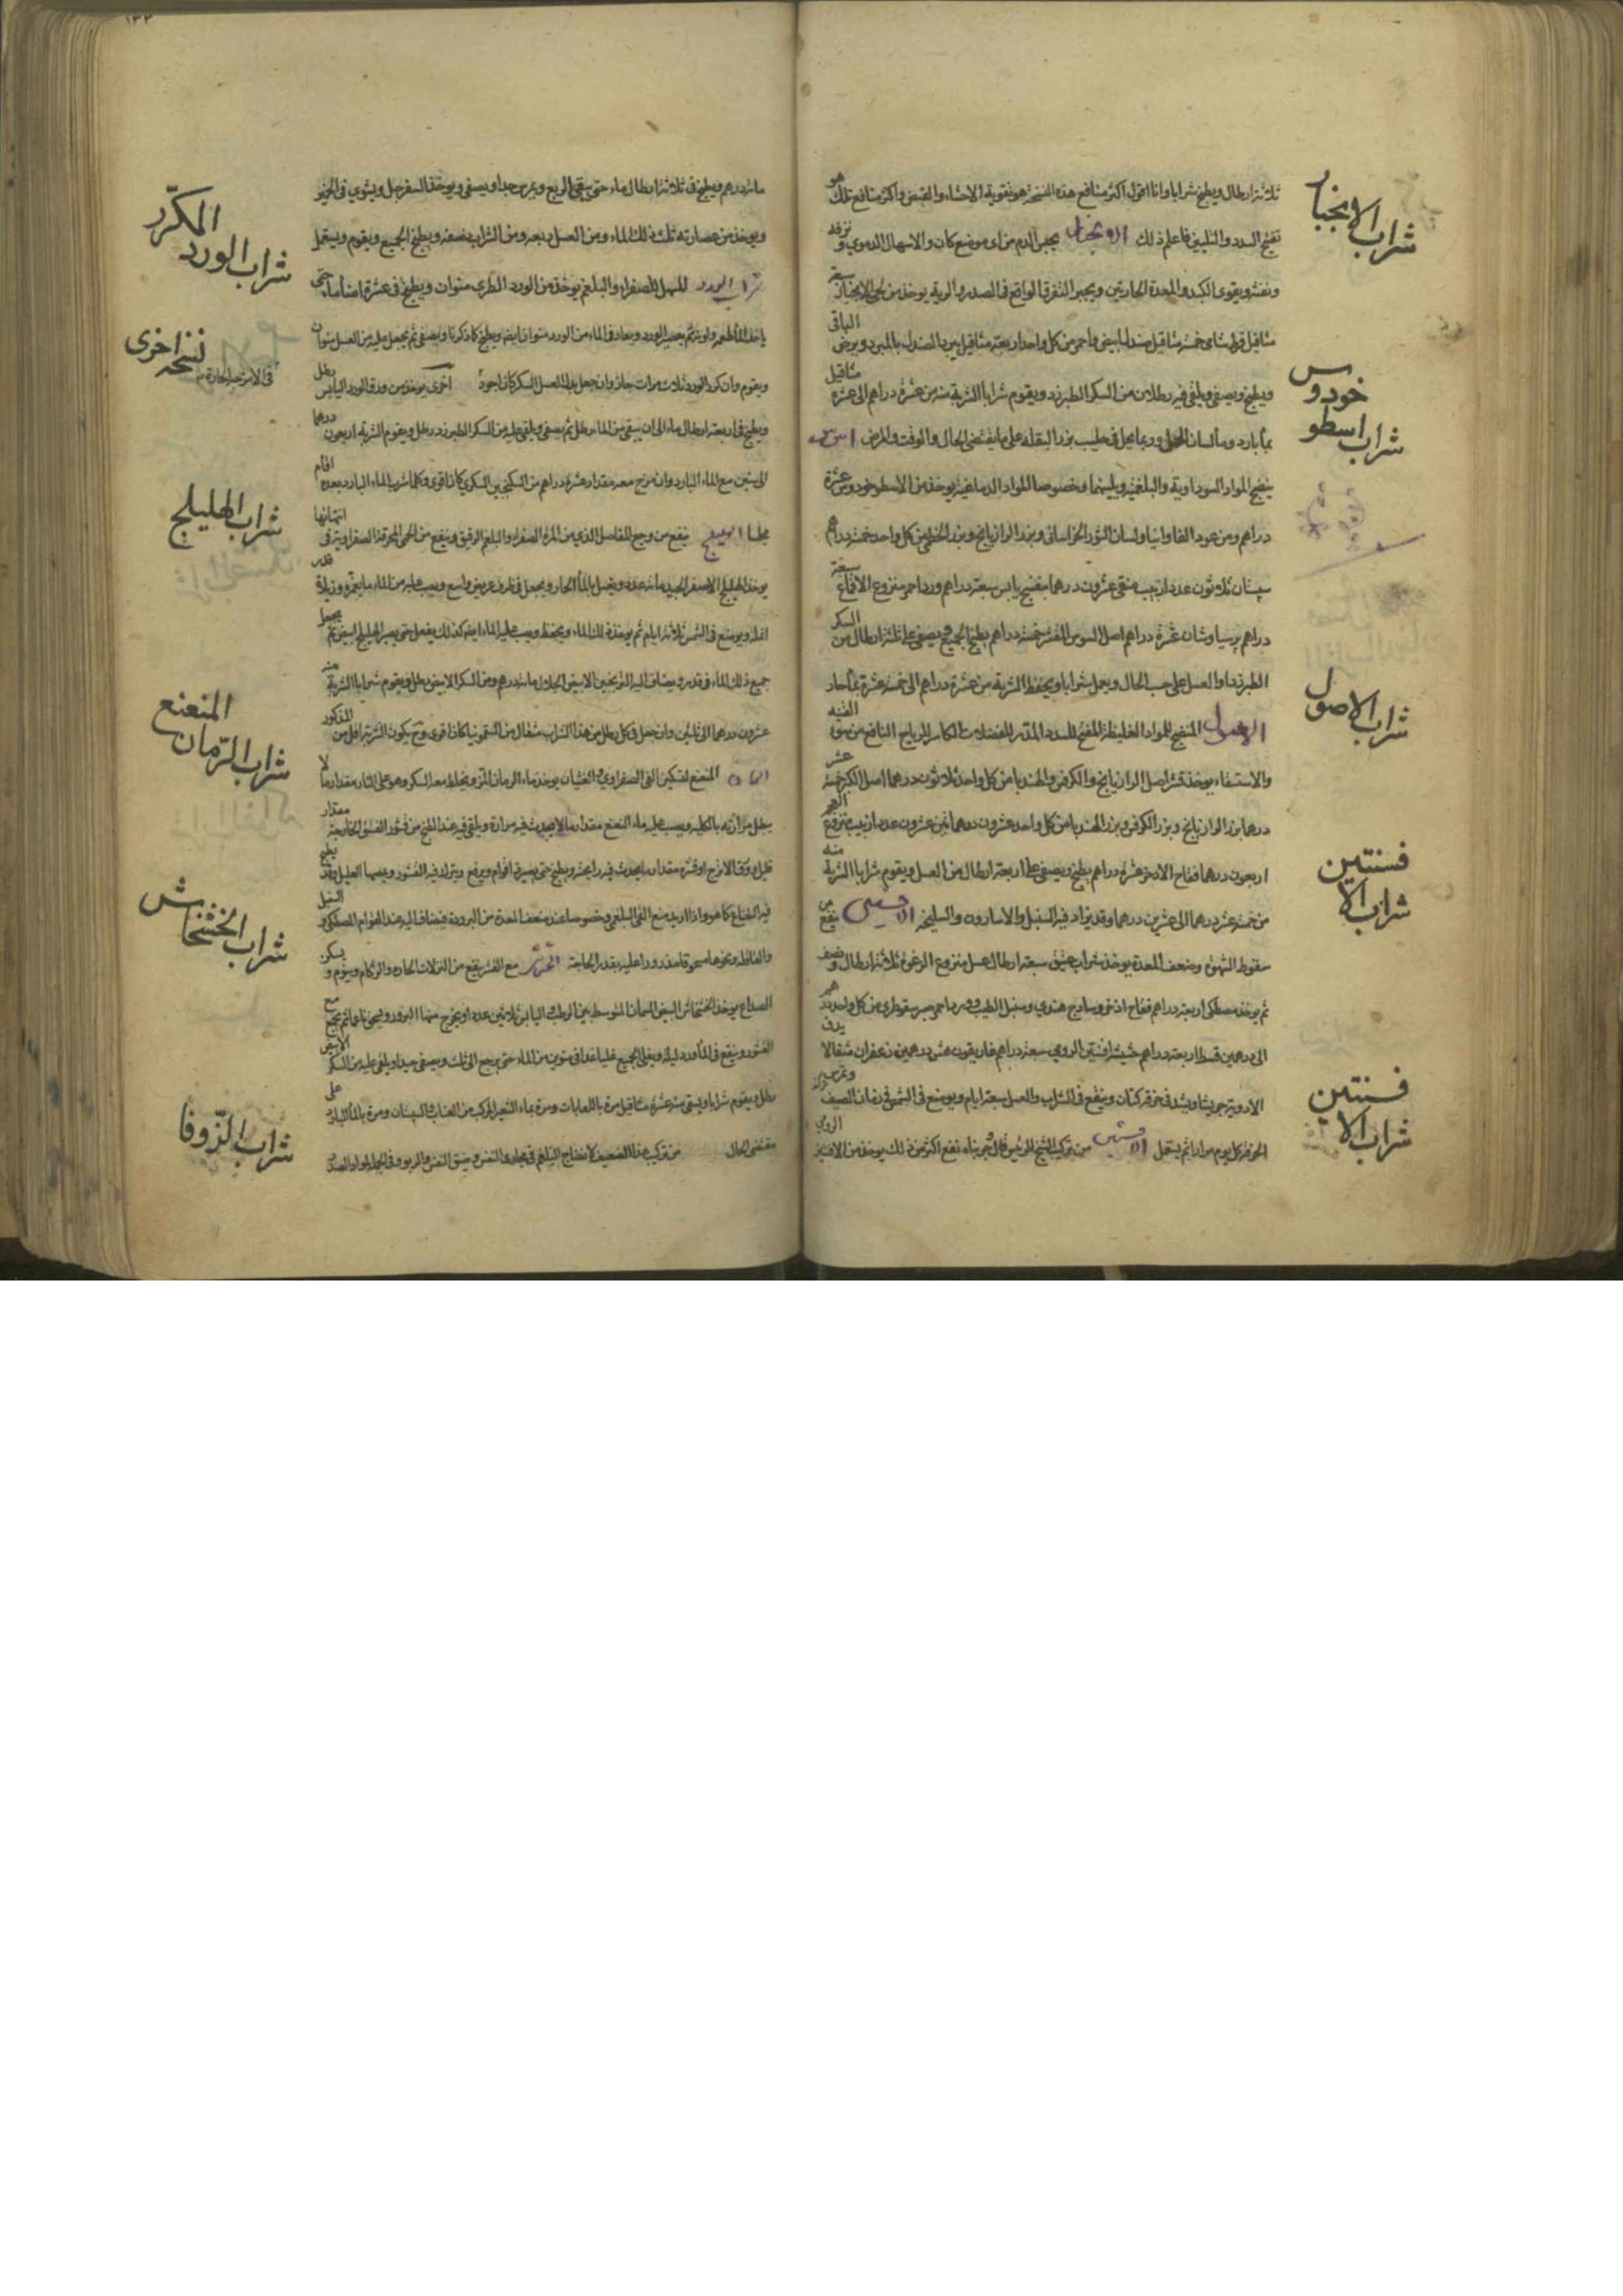 شراب الانجبار
ثلاثة ارطال ويطبخ شرابا وانا اقول اكثر منافع هذه النسخة هو تقوية الاحشاء والقبض واكثر منافع تلك هو
تفتيح السدد والتليين فاعلم ذلك الانجبار يحبس الدم من اى موضع كان والاسهال الدموي و نزفه
ونفثه ويقوى الكبد والمعدة الحارتين ويجبر التفرق الواقع فى الصدر والرية يوخذ من لحى الانجبار سبعة
مثاقيل خمسة مثاقيل صندل ابيض واحمر من كل واحد اربعة مثاقيل يبرد الصندل بالمبرد ويرض الباقى
ويطبخ ويصفى ويلقى فيه رطلان من السكر الطبرزد ويقوم شرابا الشربة منه من عشرة دراهم الى عشرة مثاقيل
بماء بارد وماء لسان الحمل وربما يحل فى حليب بزر البقلة على ما يقتضى الحال والوقت والمرض
شراب اسطوخودوس
ينضج المواد السوداوية والبلغمية ويلينها وخصوصا المواد الدماغية يوخذ من الاسطوخودوس عشرة
دراهم ومن عود الفاوانيا ولسان الثور الخراسانى وبزر الرازيانج وبزر الخطمى من كل واحد خمسة دراهم
سپستان ثلاثون عددا زبيب منقى عشرون درهما بنفسج يابس سبعة دراهم ورد احمر منزوع الاقماع سبعة
دراهم پرسياوشان عشرة دراهم اصل السوس المقشر خمسة دراهم يطبخ الجميع ويصفى على ثلثة ارطال من السكر
الطبرزد او العسل على حسب الحال ويعمل شرابا ويحفظ الشربة من عشرة دراهم الى خمسة عشرة بماء حار
شراب الاصول
الاصول المنضج للمواد الغليظة المفتح للسدد المدر للفضلات الكاسر للرياح النافع من سوء القنيه
والاستسقاء يوخذ قشر اصل الرازيانج والكرفس والهندبا من كل واحد ثلاثون درهما اصل الكبر خمسة عشر
درهما بزر الرازيانج وبزر الكرفس وبزر الهندبا من كل واحد عشرون درهما تين عشرون عددا زبيب منزوع العجم
اربعون درهما فقاح الاذخر عشرة دراهم يطبخ ويصفى على اربعة ارطال من العسل ويقوم شرابا الشربة منه
شراب الافسنتين
من خمسة عشر درهما الى عشرين درهما وقد يزاد فيه السنبل والاسارون والسليخه ينفع من
سقوط الشهوة وضعف المعدة يوخذ شراب عتيق سبعة ارطال عسل منزوع الرغوة ثلاثة ارطال و نصف
ثم يوخذ مصطكى اربعة دراهم فقاح اذخر وساذج هندي وسنبل الطيب وورد احمر وصبر سقوطري من كل واحد درهم
الى درهمين قسط اربعة دراهم حشيش افسنتين الرومي سبعة دراهم غاريقون عشر درهمين زعفران مثقالا يدق
الادوية جريشا ويشد فى خرقة كتان وينقع فى الشراب والعسل سبعة ايام ويوضع فى الشمس فى زمان الصيف وتمرس
شراب الافسنتين
الخرقة كل يوم مرارا ثم يستعمل من تركيب الشيخ الرئيس قال جربناه نفع اكثر من ذلك يوخذ من الافسنتين الرومي
١٣٢
شراب الورد المكرّر
مائة درهم ويطبخ فى ثلاثة ارطال ماء حتى يبقى الربع ويمرس جيدا ويصفى ويوخذ السفرجل ويشوي فى الخمير
ويوخذ من عصارته ثلث ذلك الماء ومن العسل ربعه ومن الشراب نصفه ويطبخ الجميع ويقوم ويستعمل
شراب الورد المسهل للصفراء والبلغم يوخذ من الورد الطرى منوان ويطبخ فى عشرة امنا ماء حتى
ياخذ الماء طعمه ولونه ثم يعصر الورد ويعاد فى الماء من الورد منوان ايضا ويطبخ كما ذكرنا ويصفى ثم يجعل عليه من العسل منوان
نسخه اخرى فى الامزجة الحارة
ويقوم وان كرر الورد ثلاث مرات جاز وان جعل بدل العسل السكر كان اجود اخرى يوخذ من ورق الورد اليابس رطل
ويطبخ فى اربعة ارطال ماء الى ان يبقى من الماء رطل ثم يصفى ويلقى عليه من السكر الطبرزد رطل ويقوم الشربة اربعون درهما
الى ستين مع الماء البارد وان مزج معه مقدار عشرة دراهم من السكنجبين السكري كان اقوى وكلما شرب الماء البارد بعده اقام
شراب الهليلج
مجلسا الهليلج ينفع من وجع المفاصل الذى من المرة الصفراء والبلغم الرقيق وينفع من الحمى المحرقة الصفراوية فى انتهائها
يوخذ الهليلج الاصفر الجيد مائة عدد ويغسل بالماء الحار ويجعل فى ظرف عريض واسع ويصب عليه من الماء ما يغمره وزيادة قدر
ويوضع فى الشمس ثلاثة ايام ثم يوخذ ذلك الماء ويحفظ ويصب عليه الماء ايضا كذلك يفعل حتى يصير الهليلج ابيض ثم يجعل
جميع ذلك الماء فى قدر ويضاف اليه الترنجبين الابيض الجلال مائة درهم ومن السكر الابيض رطل ويقوم شرابا الشربة منه
عشرون درهما الى ثلثين وان جعل فى كل رطل من هذا الشراب مثقال من السقمونيا كان اقوى وح يكون الشربة اقل من المذكور
شراب الرّمان المنعنع
الرمان المنعنع لتسكين القى الصفراوي والغثيان يوخذ ماء الرمان المز ويخلط معه السكر وهو على النار مقدار ما لا
يبطل مزازته بالكلية ويصب عليه ماء النعنع مقدار ما لا يحدث فيه مرارة ويلقى فيه عند الطبخ من قشور الفستق الخارجة مقدار
قليل وورق الاترج او قشره مقدار ما يحدث فيه رايحته ويطبخ حتى يصير فى اقوام ويرفع ويترك فيه القشور ويمصها العليل وقد يطبخ
فيه النعناع كما هو واذا اريد منع القى البلغمي وخصوصا عند ضعف المعدة من البرودة فيضاف اليه عند القوام المصطكى و السنبل
شراب الخشخاش
والقاقلة ونحوها مسحوقا مذرورا عليه بقدر الحاجة الخشخاش مع القشر ينفع من النزلات الحاره والزكام وينوم و يسكن
الصداع يوخذ الخشخاش الابيض السمان المتوسط بين الرطب واليابس ثلاثين عددا ويخرج منها البزور ويسحق ناعما ثم يجمع مع
القشور وينقع فى الماورد ليلة ويغلى الجميع غليا غدا فى منوين من الماء حتى يرجع الى ثلث ويصفى جيدا ويلقى عليه من السكر الابيض
رطل ويقوم شرابا ويسقى منه عشرة مثاقيل مرة باللعابات ومرة بماء الشعير المركب من العناب والسپستان ومرة بالماء البارد على
شراب الزّوفا
مقتضى الحال من تركيب هذا الضعيف لانضاج البلغم فى مجارى النفس وضيق النفس والربو وفى الجملة لمواد الصدر